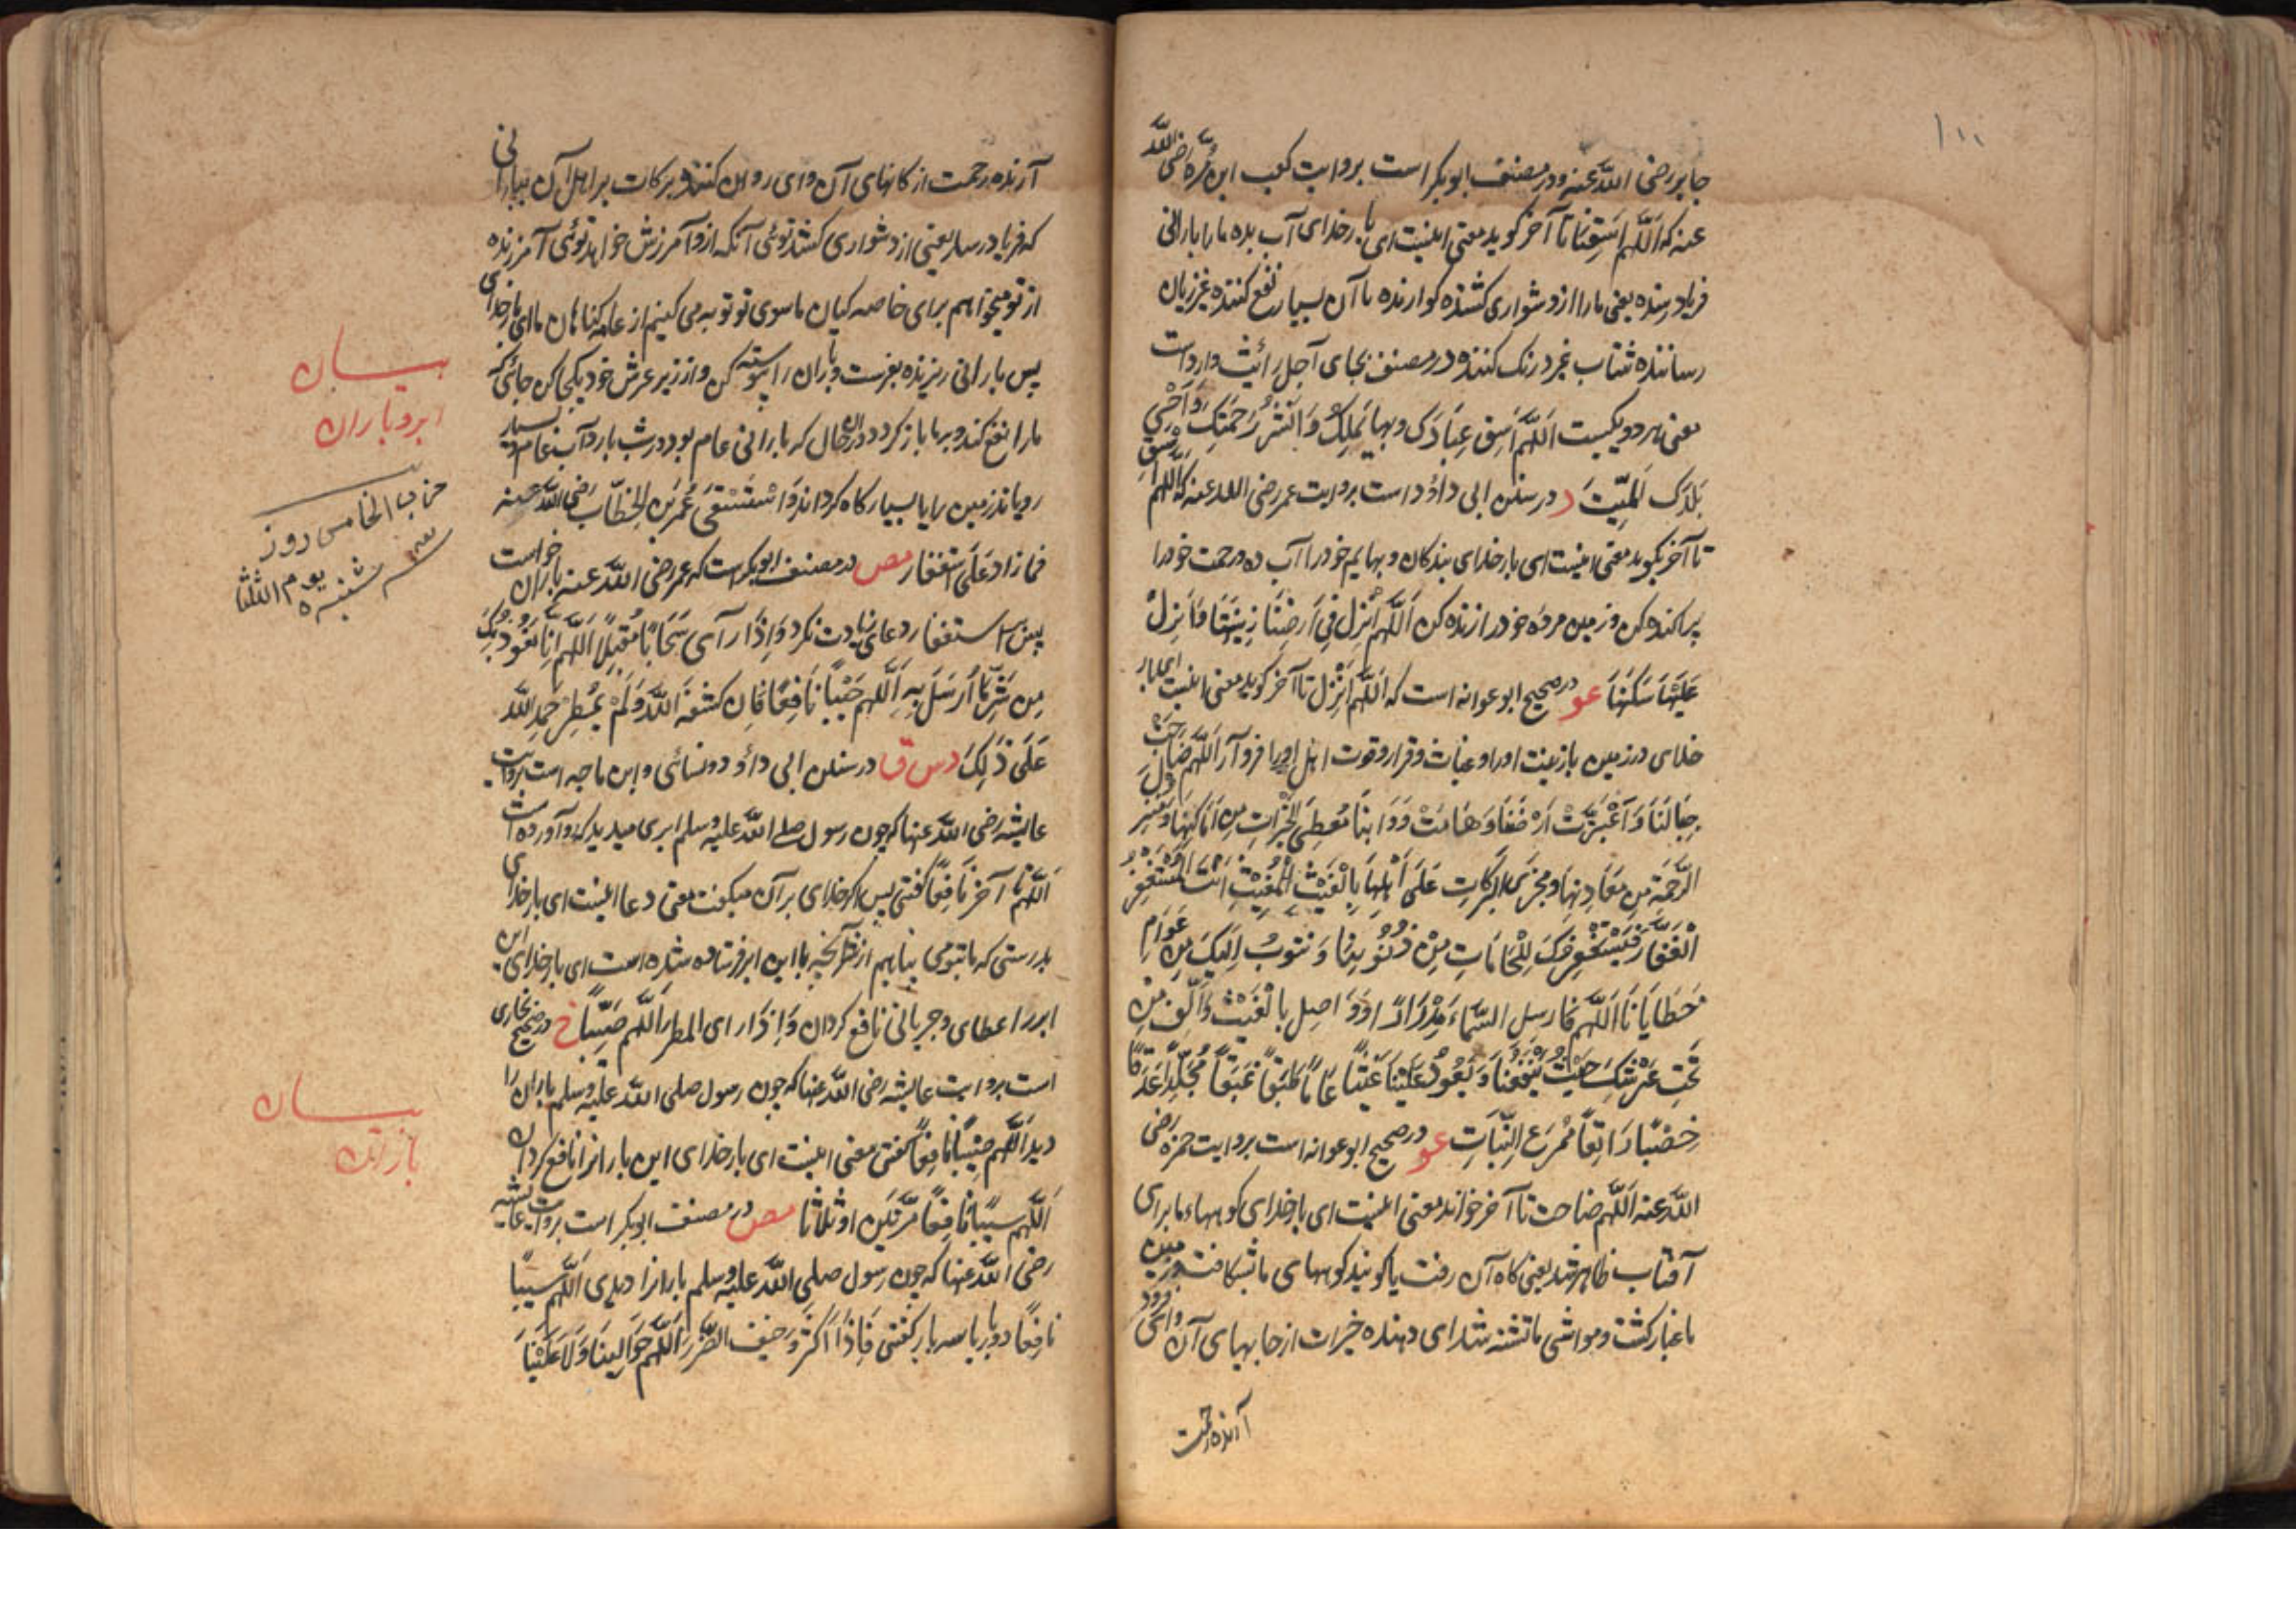 ۱۰۰
جابر رضی الله عنه و در مصنف ابوبکر است بروایت کعب ابن مُرَّه رضی الله
عنه که اَللّهم اسقِنَا تا آخر کوید معنی اینست ای بار خدای آب بده ما را بارانی
فریاد رسنده یعنی ما را از دشواری کشنده کوارنده با آن بسیار نفع کننده غیر زیان
رساننده شتاب غیر درنک کننده در مصنف بجای آجل رائث وارد است
معنی هر دو یکیست اَللّهم اَسقِ عِبَادَکَ وبهائمِکَ وَانْشُر رَحمَتِکَ وَاَحْیِ
بَلَدَکَ المیّتَ د در سنن ابی داؤد است بروایت عمر رضی الله عنه که اللهم اسق
تا آخر بکوید معنی اینست ای بار خدای بندکان و بهایم خود را آب ده و رحمت خود را
پراکنده کن و زمین مرده خود را زنده کن اَللّهم اَنزِل فِی اَرضِنَا زِینَتَهَا وَاَنزِلْ
عَلَیْهَا سَکَنَهَا عو در صحیح ابوعوانه است که اَللّهم انزل تا آخر کوید معنی اینست ای بار
خدای در زمین ما زینت او را و غیاث و قرار و قوت اهل او را فرو آر اَللّهم ضَاحَتْ
جِبَالُنَا وَاَغْبَرَّتْ اَرْضُنَا وَهَامَتْ دَوَابُّنَا مُعطِیَ الخَیْرَاتِ مِن اَمَاکِنِهَا وَمُنزِلَ
الرَّحمَةِ مِن مَعَادِنِهَا وَمُجْرِیَ البَرَکَاتِ عَلَی اَهْلِهَا بِالْغَیْثِ الْمُغِیْثِ اَنْتَ المُسْتَغْفَرُ
الْغَفَّارُ فَنَسْتَغْفِرُکَ لِلْحَامَّاتِ مِنْ ذُنُوبِنَا وَنَتوبُ اِلَیکَ مِن عَوَامِّ
خَطَایَانَا اَللّهم فَارسِلِ السَّمَاءَ مِدْرَارًا وَوَاصِل بِالْغَیْثِ وَاَکِفْ مِنْ
تَحتِ عَرْشِکَ حَیْثُ یَنْفَعُنَا وَیَعُوْدُ عَلَیْنَا غَیْثًا عَامًّا طَبَقًا غَبَقًا مُجَلِّلًا غَدَقًا
خِصْبًا رَاتِعًا مُمْرِعَ النَّبَاتِ عو در صحیح ابوعوانه است بروایت حمزه رضی
الله عنه اَللّهم ضاحت تا آخر خواند معنی اینست ای بار خدای کوهها ما برای
آفتاب ظاهر شد یعنی کاه آن رفت یا کویند کوههای ما بشکافت و زمین
ما غبار کشت و مواشی ما تشنه شد ای دهنده خیرات از جایهای آن و ای فرود
آرنده رحمت
آرنده رحمت از کانهای آن و ای روان کننده برکات بر اهل آن ببارانی
که فریاد رسد یعنی از دشواری کشد توئی آنکه ازو آمرزش خواهد توئی آمرزنده
از تو میخواهم برای خاصه کیان ما سوی تو توبه می کنیم از عامه کناهان ما ای بار خدای
پس بارانی ریزنده بفرست و باران را پیوسته کن و از زیر عرش خود بکن جائی که
ما را نفع کند و بر ما باز کردد در آن حال که بارانی عام بود در شب بارد آب عام بسیار
رویاند زمین را با بسیار کاه کرداند وَاسْتَسْقَی عُمَرُ بن الخطّاب رضی الله عنه
فما زاد عَلَی استغفار مص در مصنف ابوبکر است که عمر رضی الله عنه باران خواست
پس استغفار دعا زیادت نکرد وَاِذَا رَآی سَحَابًا مُقبِلًا اَللّهم اِنّا نَعُوذُ بِکَ
مِن شَرِّ مَا اُرسِلَ بِه اَللّهم صَیِّبًا نَافِعًا فَاِن کشفَه اللّه وَلَمْ یُمْطِر حَمِدَ اللّٰهَ
عَلَی ذَلِکَ د س ق در سنن ابی داؤد و نسائی و ابن ماجه است بروایت
عایشه رضی الله عنها که چون رسول صلی الله علیه وسلم ابری میدید که رو آورده است
اَللّهم تا آخر نَافِعًا کفتی پس اکر خدای بر آن میکفت معنی دعا اینست ای بار خدای
بدرستی که ما بتو می پناهیم از شر آنچه با این ابر فرستاده شده است ای بار خدای این
ابر را عطای و جریانی نافع کردان وَاِذَا رای المطر اَللّهم صَیِّبًا خ در صحیح بخاری
است بروایت عایشه رضی الله عنها که چون رسول صلی الله علیه وسلم باران را
دید اَللّهم صَیِّبًا نَافِعًا کفتی معنی اینست ای بار خدای این باران را نافع کردان
اَللّهم سیبًا نَافِعًا مَرَّتَین او ثَلاثًا مص در مصنف ابوبکر است بروایت عایشه
رضی الله عنها که چون رسول صلی الله علیه وسلم باران را دیدی اَللّهم سیبًا
نافِعًا دو بار یا سه بار کفتی فَاِذَا اکثرَ وَخِیف الضَّرَرَ اَللّهم حَوَالینَا وَلَا عَلَیْنَا
بیان
ابر و باران
حزب الخامس روز
سه شنبه
یوم الثلثا
بیان
باران